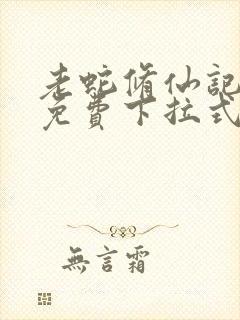 老蛇脩仙記
免費下拉式
無言霜